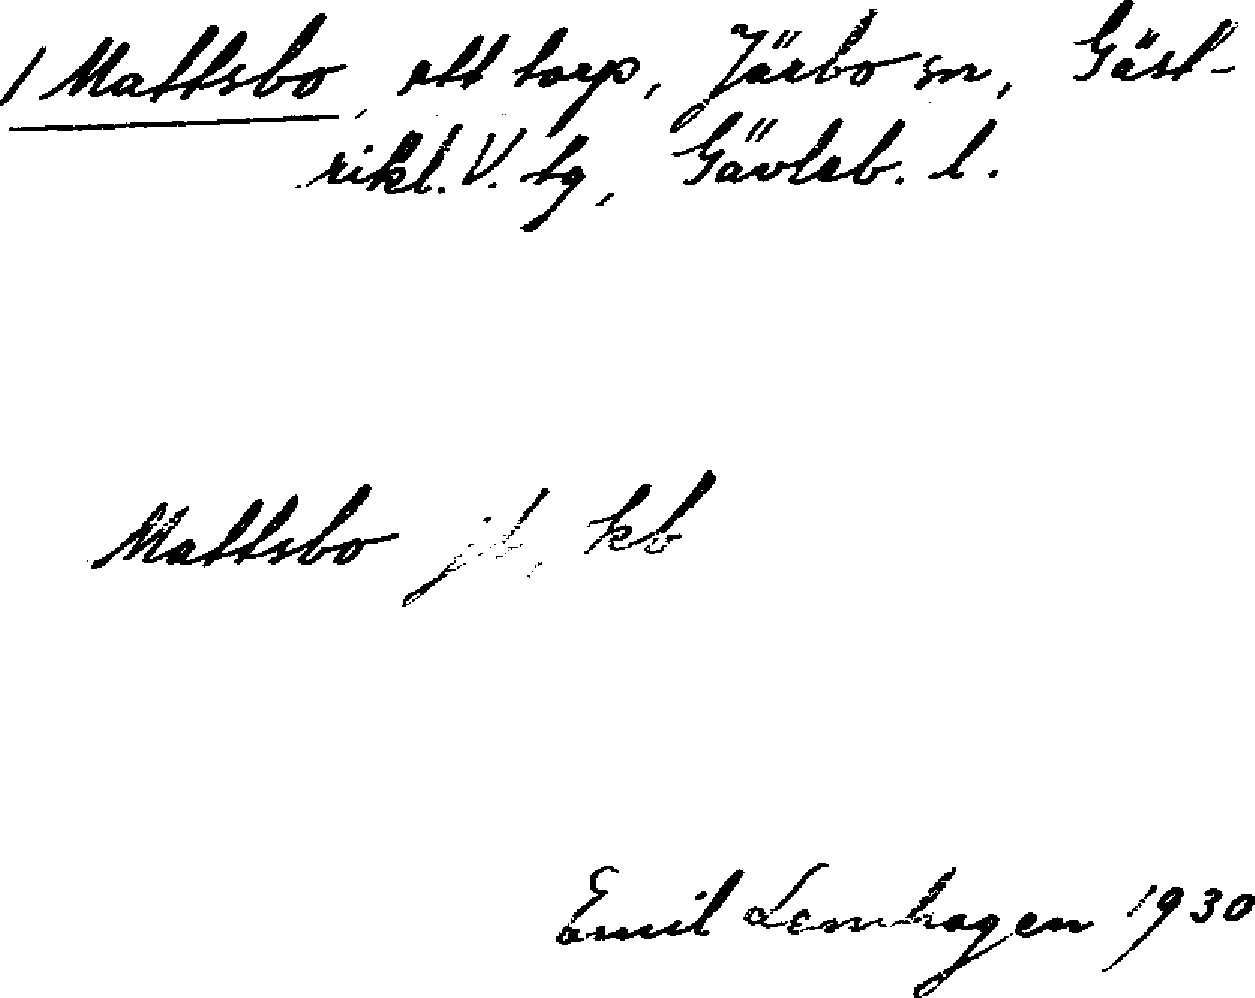 / Mattsbo, ett torp, Järbo sn, Gäst-
rikl. V. tg, Gävleb. l.
Mattsbo jb, kb
Emil Lemhagen 1930